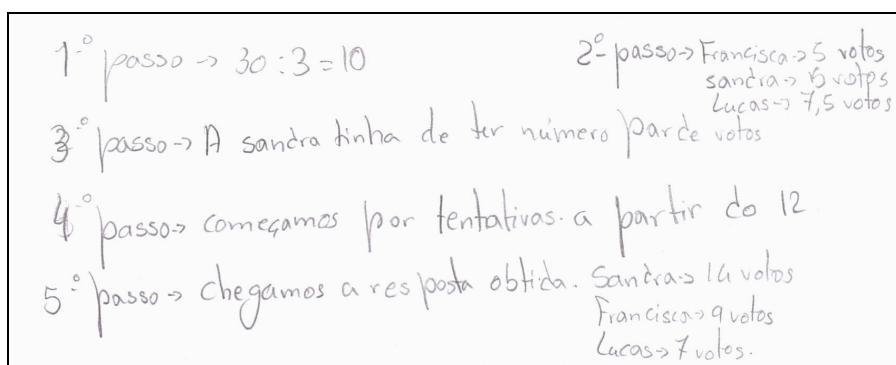 1º passo → 30 : 3 = 10
2º passo → Francisca → 5 votos
sandra → 15 votos
Lucas → 7,5 votos
3º passo → A sandra tinha de ter número par de votos
4º passo → começamos por tentativas. a partir do 12
5º passo → chegamos a resposta obtida. Sandra → 14 votos
Francisca → 9 votos
Lucas → 7 votos.